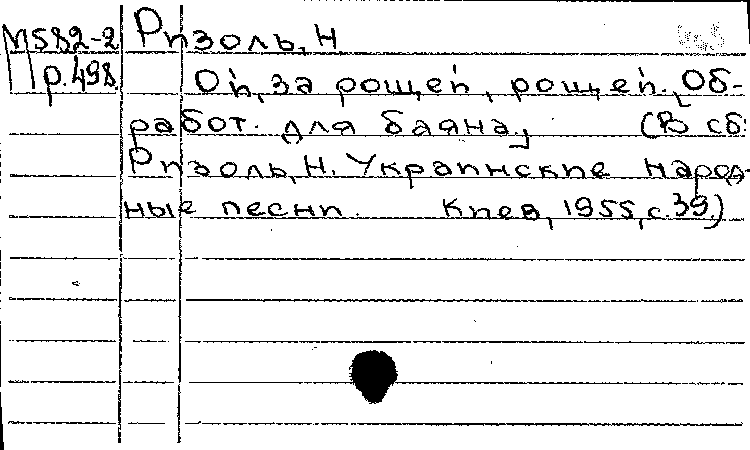 М582-2 Ризоль, Н.
Пр.498 Ой, за рощей, рощей. [Об-
работ. для баяна] (В сб:
Ризоль, Н. Украинские народ-
ные песни. Киев, 1955, с.39.)